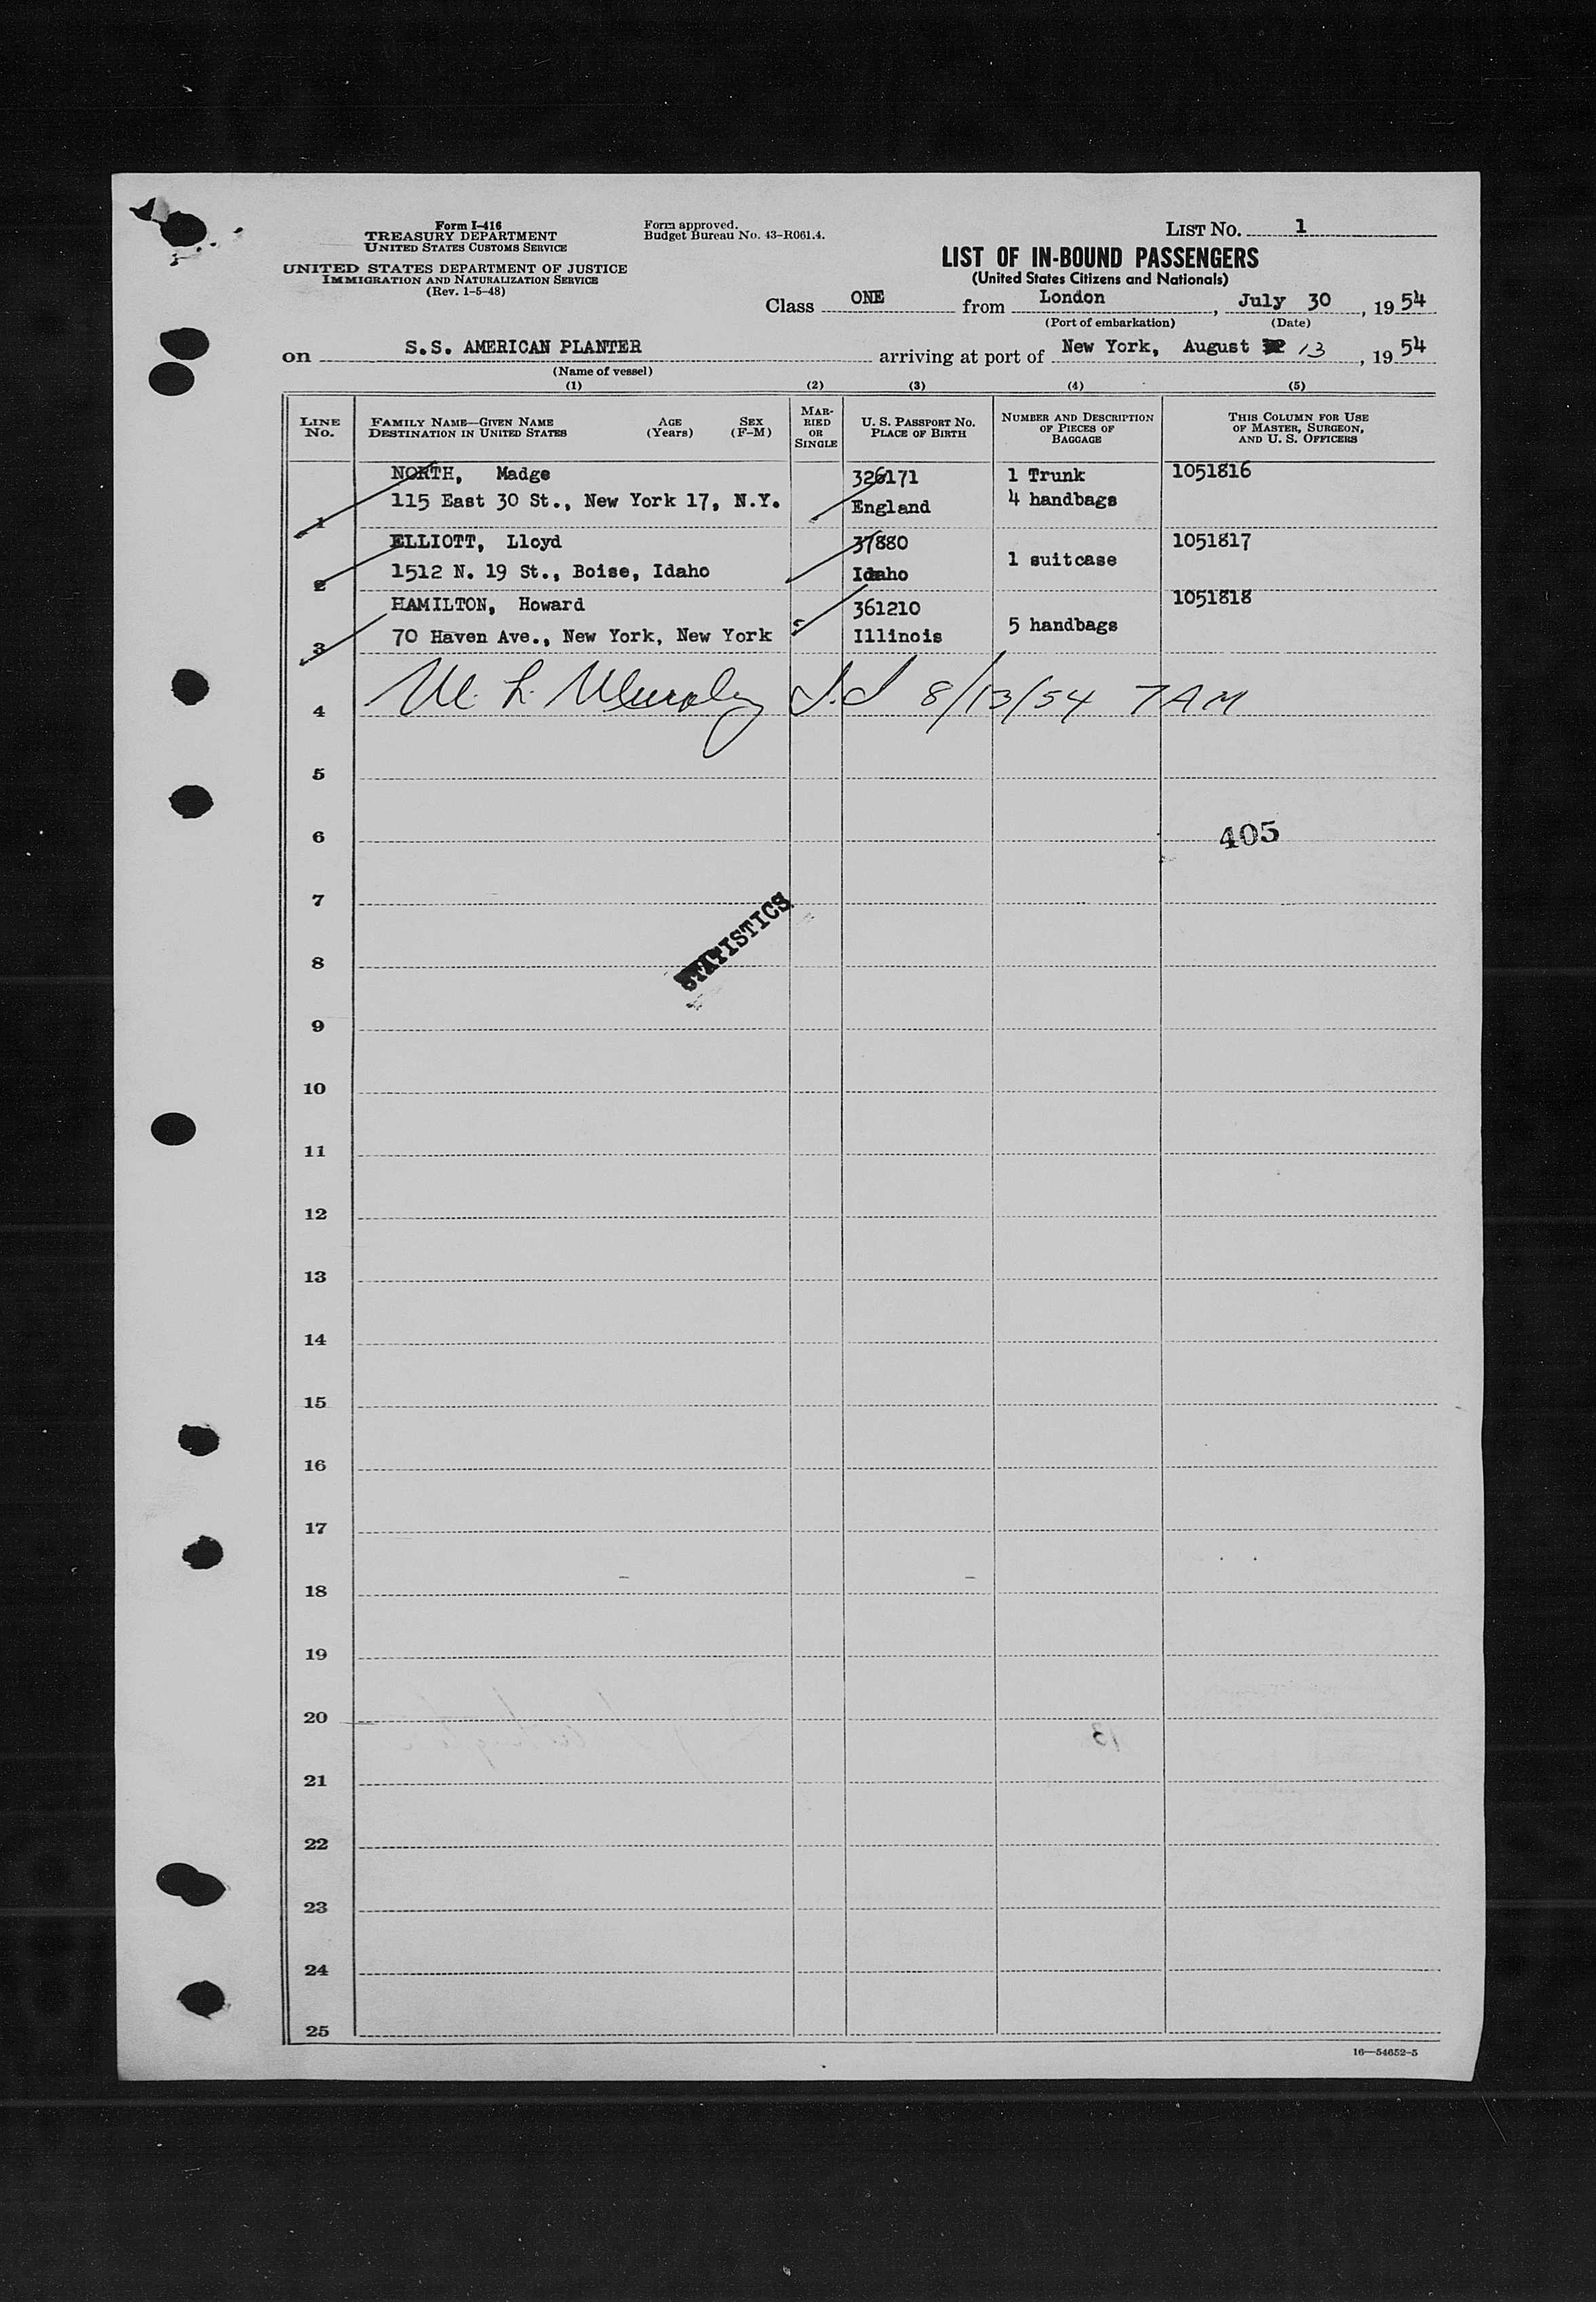 Form I-416
TREASURY DEPARTMENT
UNITED STATES CUSTOMS SERVICE
UNITED STATES DEPARTMENT OF JUSTICE
IMMIGRATION AND NATURALIZATION SERVICE
(Rev. 1-5-48)
Form approved.
Budget Bureau No. 43-R061.4.
LIST NO. 1
LIST OF IN-BOUND PASSENGERS
(United States Citizens and Nationals)
Class ONE from London, July 30, 1954
(Port of embarkation) (Date)
on S.S. AMERICAN PLANTER arriving at port of New York, August 13, 1954
(Name of vessel)
(1) (2) (3) (4) (5)
LINE NO.
FAMILY NAME—GIVEN NAME
DESTINATION IN UNITED STATES
AGE (Years)
SEX (F-M)
MARRIED OR SINGLE
U. S. PASSPORT NO.
PLACE OF BIRTH
NUMBER AND DESCRIPTION OF PIECES OF BAGGAGE
THIS COLUMN FOR USE OF MASTER, SURGEON, AND U. S. OFFICERS
NORTH, Madge 326171 1 Trunk 1051816
1 115 East 30 St., New York 17, N.Y. England 4 handbags
ELLIOTT, Lloyd 37880 1 suitcase 1051817
2 1512 N. 19 St., Boise, Idaho Idaho
HAMILTON, Howard 361210 5 handbags 1051818
3 70 Haven Ave., New York, New York Illinois
4 M. L. Murphy 8/13/54 7 AM
5
6 405
7
STATISTICS
8
9
10
11
12
13
14
15
16
17
18
19
20
21
22
23
24
25
16—54652-5